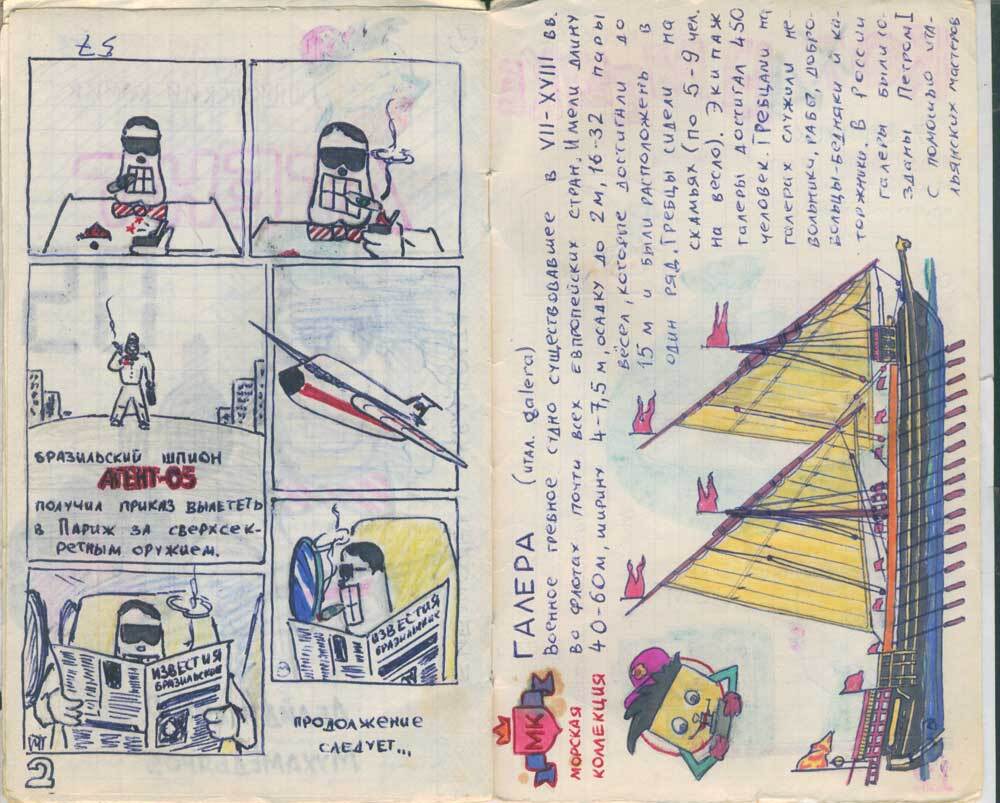 57
БРАЗИЛЬСКИЙ ШПИОН
АГЕНТ-05
ПОЛУЧИЛ ПРИКАЗ ВЫЛЕТЕТЬ
В ПАРИЖ ЗА СВЕРХСЕК-
РЕТНЫМ ОРУЖИЕМ.
ИЗВЕСТИЯ
БРАЗИЛЬСКИЕ
ИЗВЕСТИЯ
БРАЗИЛЬСКИЕ
ПРОДОЛЖЕНИЕ
СЛЕДУЕТ...
МК
МОРСКАЯ
КОЛЛЕКЦИЯ
ГАЛЕРА (итал. galera)
Военное гребное судно существовавшее в VII-XVIII вв.
во флотах почти всех европейских стран. Имели длину
40-60м, ширину 4-7,5 м, осадку до 2м, 16-32 пары
вёсел, которые достигали до
15 м и были расположены в
один ряд. Гребцы сидели на
скамьях (по 5-9 чел.
на весло). Экипаж
галеры достигал 450
человек. Гребцами на
галерах служили не-
вольники, рабы, добро-
вольцы-бедняки и ка-
торжники. В России
галеры были со-
зданы Петром I
с помощью ита-
льянских мастеров